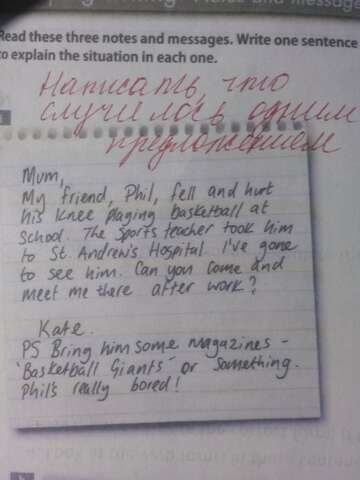 Read these three notes and messages. Write one sentence
to explain the situation in each one.
Написать, что
случилось одним
предложением
Mum,
My friend, Phil, fell and hurt
his knee playing basketball at
school. The sports teacher took him
to St. Andrew's Hospital. I've gone
to see him. Can you come and
meet me there after work?
Kate.
PS Bring him some magazines -
'Basketball Giants' or something.
Phil's really bored!